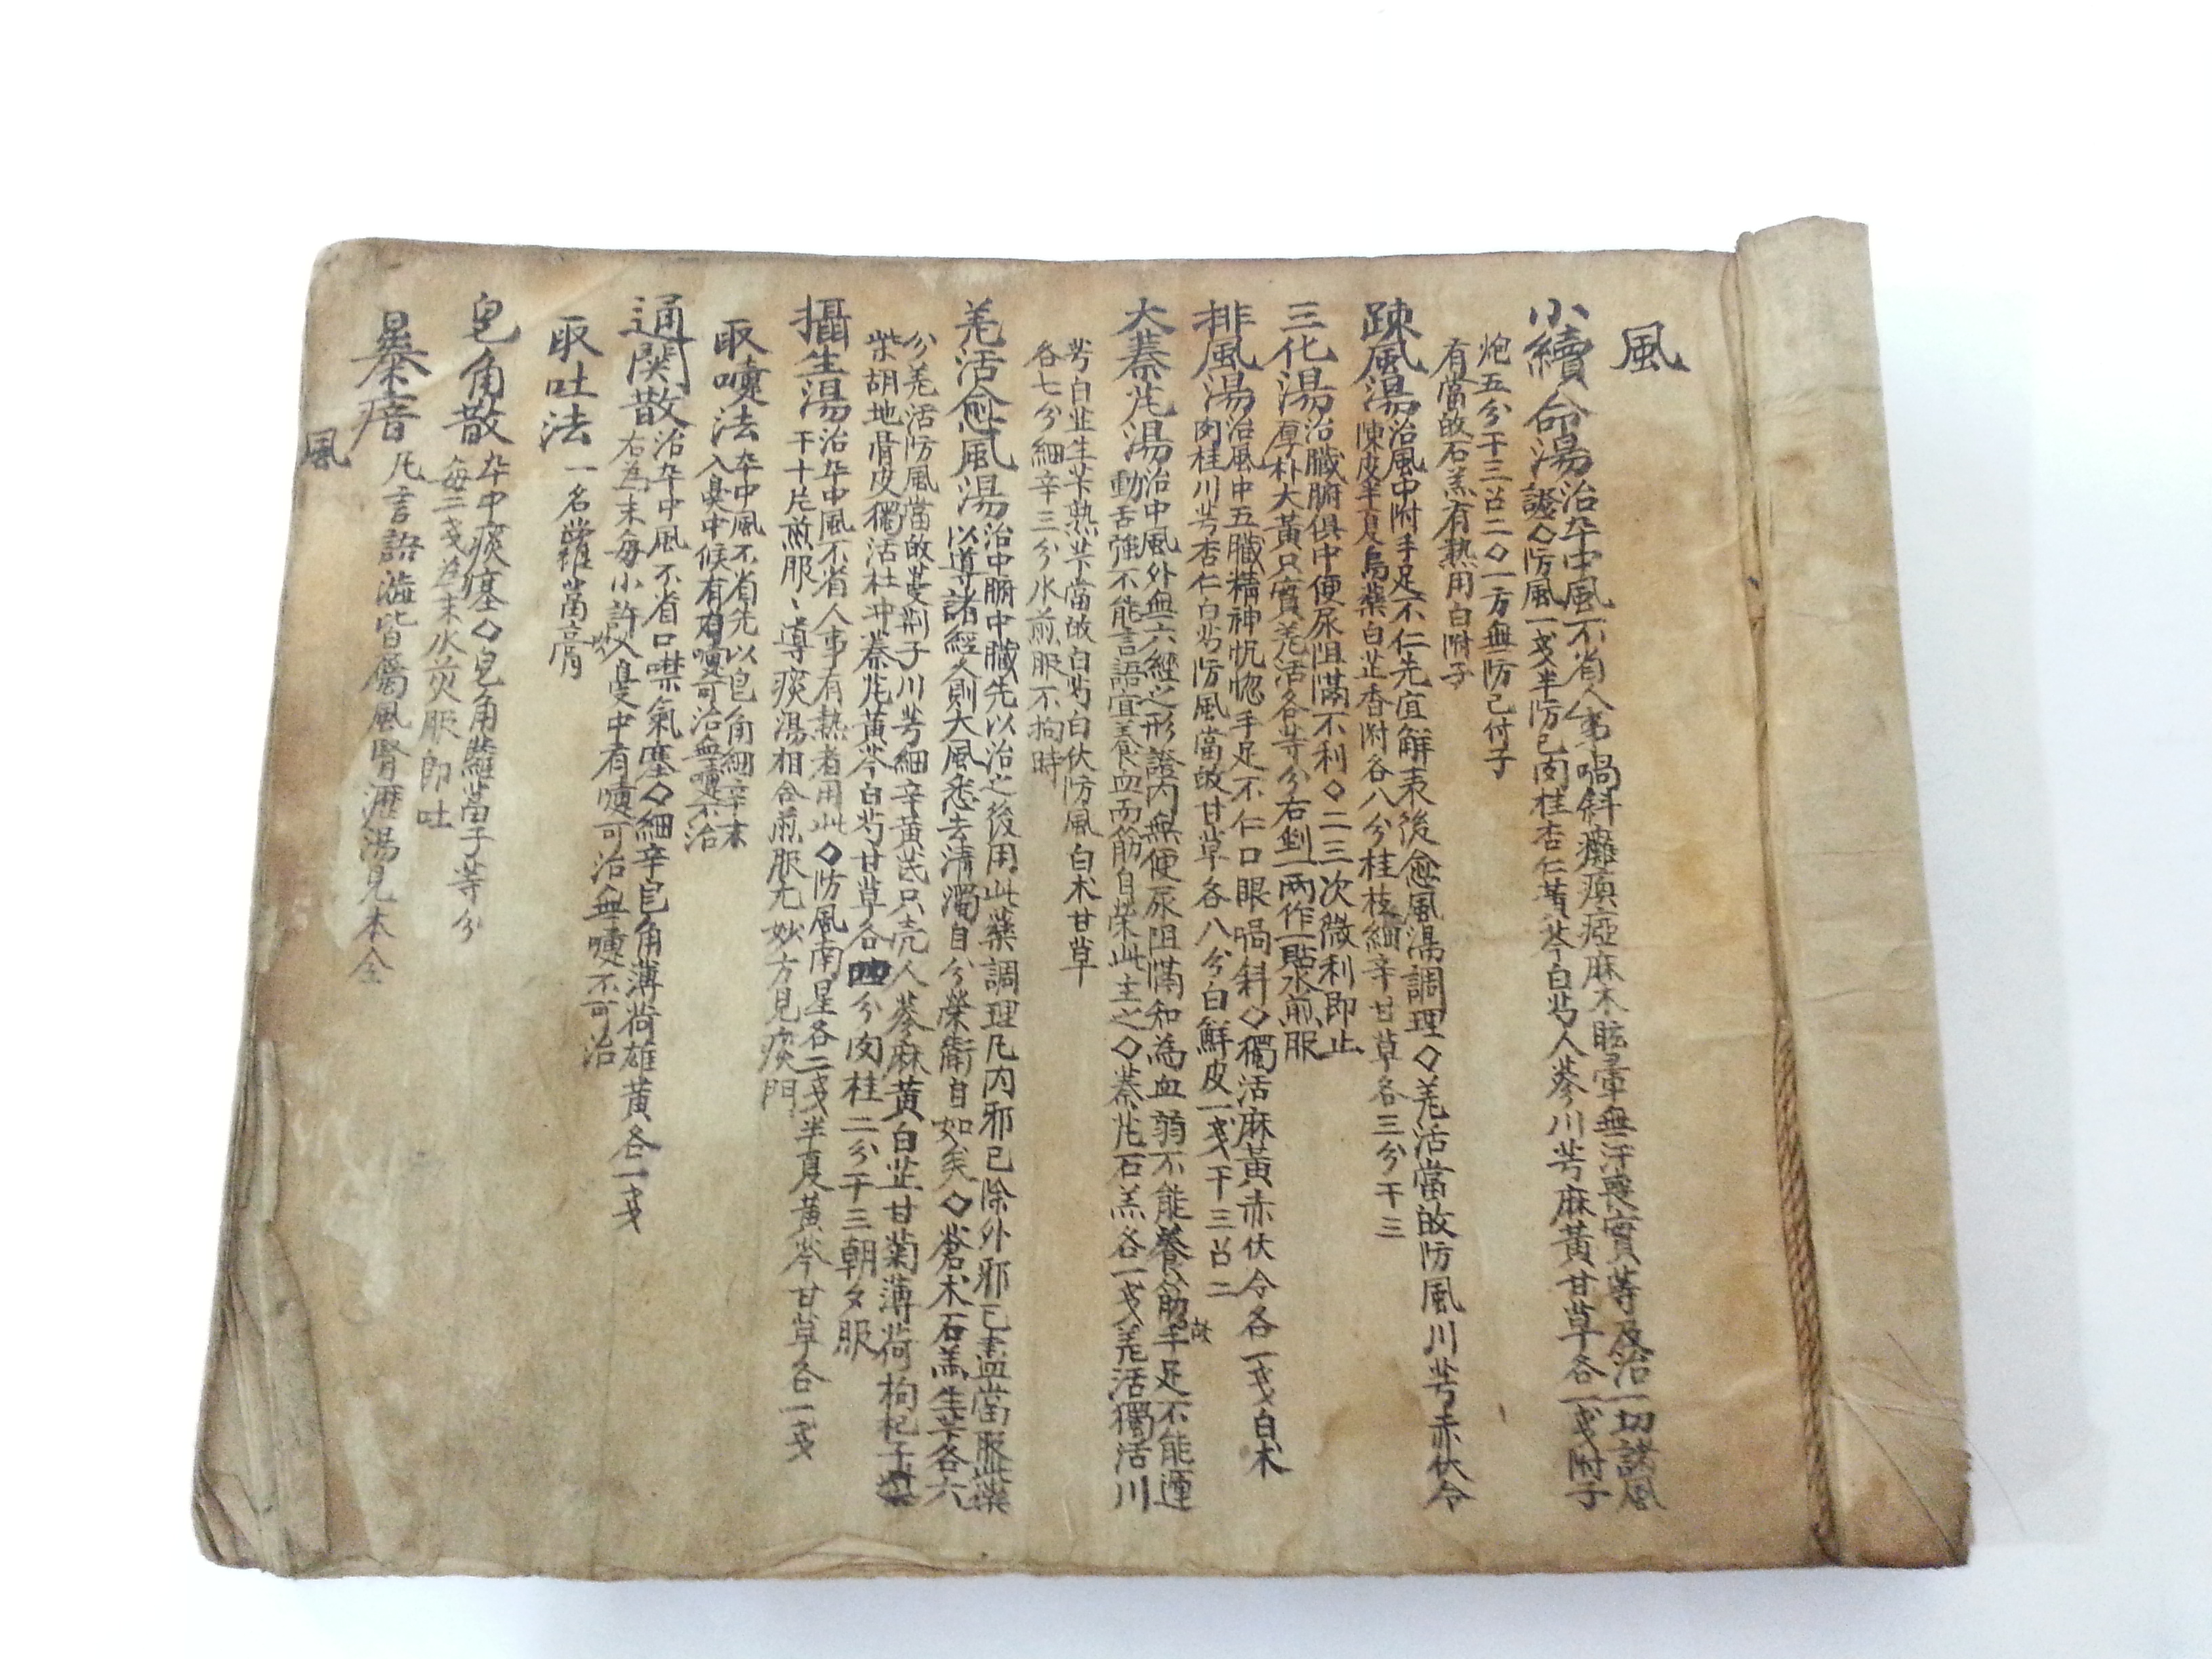 風
小續命湯
治卒中風不省人事喎斜癱瘓瘂麻木眩暈無汗表實等及治一切諸風
證◇防風一戔半防己肉桂杏仁黃芩白芍人蔘川芎麻黃甘草各一戔附子
炮五分干三召二◇一方無防己付子
有當故石羔有熱用白附子
疎風湯
治風中附手足不仁先宜解表後愈風湯調理◇羌活當故防風川芎赤伏令
陳皮半夏烏藥白芷香附各八分桂枝細辛甘草各三分干三
三化湯
治臟腑俱中便尿阻滿不利◇二三次微利即止
厚朴大黃只實羌活各等分右剉一兩作一貼水煎服
排風湯
治風中五臟精神怳惚手足不仁口眼喎斜◇獨活麻黃赤伏令各一戔白朮
肉桂川芎杏仁白芍防風當故甘草各八分白鮮皮一戔干三召二
大蓁艽湯
治中風外無六經之形證內無便尿阻滿知為血弱不能養筋故手足不能運
動舌強不能言語宜養血而筋自榮此主之◇蓁艽石羔各一戔羌活獨活川
芎白芷生芐熟芐當故白芍白伏防風白朮甘草
各七分細辛三分水煎服不拘時
羌活愈風湯
治中腑中臟先以治之後用此藥調理凡內邪已除外邪已盡當服此藥
以導諸經久則大風悉去清濁自分榮衛自如矣◇蒼朮石羔生芐各六
分羌活防風當故蔓荊子川芎細辛黃芪只壳人蔘麻黃白芷甘菊薄荷枸杞子
柴胡地骨皮獨活杜冲蓁艽黃芩白芍甘草各四分肉桂二分干三朝夕服
攝生湯
治卒中風不省人事有熱者用此◇防風南星各二戔半夏黃芩甘草各一戔
干十片煎服、導痰湯相合煎服尤妙方見痰門
取嚏法
卒中風不省先以皂角細辛末
入臭中候有嚏可治無嚏不治
通関散
治卒中風不省口噤氣塞◇細辛皀角薄荷雄黃各一戔
右為末每小許吹入臭中有嚏可治無嚏不可治
取吐法
一名蘿䓪膏
皂角散
卒中痰塞◇皂角蘿䓪子等分
每三戔為末水煎服即吐
暴瘖
凡言語澁皆屬風腎瀝湯見本仝
風